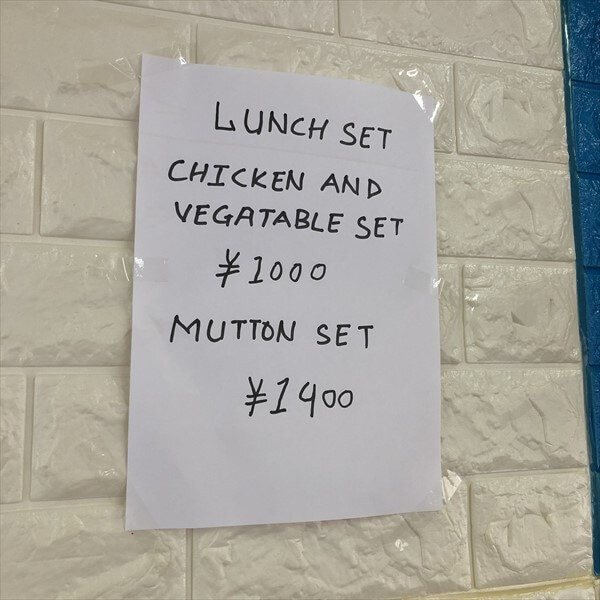 LUNCH SET
CHICKEN AND
VEGATABLE SET
¥1000
MUTTON SET
¥1400